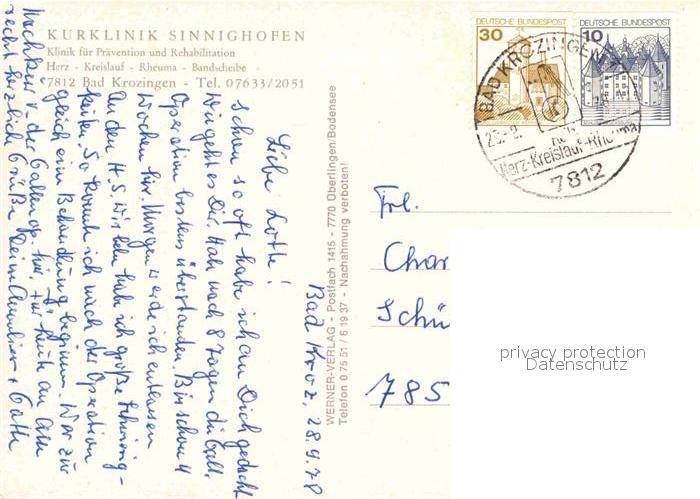 KURKLINIK SINNIGHOFEN
Klinik für Prävention und Rehabilitation
Herz - Kreislauf - Rheuma - Bandscheibe
7812 Bad Krozingen - Tel. 07633/2051
30 DEUTSCHE BUNDESPOST
10 DEUTSCHE BUNDESPOST
BAD KROZINGEN
Herz-Kreislauf-Rheuma
7812
WERNER-VERLAG - Postfach 1415 - 7770 Überlingen/Bodensee
Telefon 0 75 51 / 6 19 37 - Nachahmung verboten!
Bad Kroz, 28.9.78
Liebe Lotte!
schon so oft habe ich an Dich gedacht
wie geht es Dir. Hab nach 8 Tagen die Gall.
Operation bestens überstanden. Bin schon 4
Wochen hier. Morgen werde ich entlassen
An den H.S. Wirbeln habe ich große Schwierig-
keiten. So konnte ich nach der Operation
gleich ein Behandlung beginnen. War zur
Nachkur v. der Gallenop. hier. Für heute an alle
recht herzliche Grüße Deine + Gatte
Frl.
Char
Schü
785
privacy protection
Datenschutz